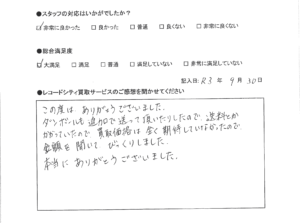 ●スタッフの対応はいかがでしたか？
☑非常に良かった □良かった □普通 □良くない □非常に良くない
●総合満足度
☑大満足 □満足 □普通 □満足していない □非常に満足していない
記入日: R3 年 9 月 30 日
●レコードシティ買取サービスのご感想を聞かせてください
この度は ありがとうございました。
ダンボールも 追加で送って頂いたりしたので、送料とか
かかっていたので 買取価格は 全く期待していなかったので、
金額を聞いて びっくりしました。
本当に ありがとうございました。